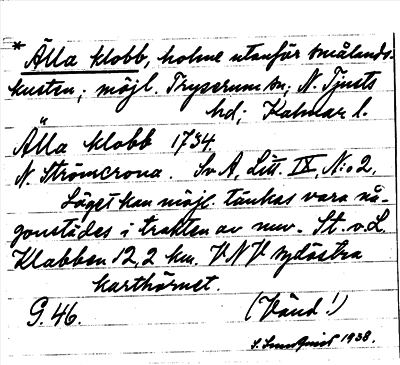 * Älla klobb, holme utanför Smålands-
kusten; möjl. Tryserum sn; N. Tjusts
hd; Kalmar l.
Älla klobb 1734.
N. Strömcrona. Sv A, Litt. IX, N:o 2.
Läget kan möjl. tänkas vara nå-
gonstädes i trakten av nuv. St. o. L.
Klabben 12,2 km. VNV sydöstra
karthörnet.
G. 46. (Vänd!)
1938.